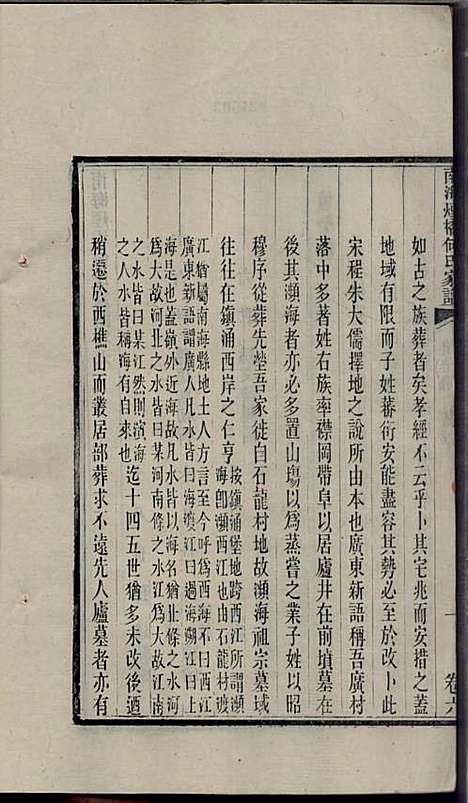 南海煙橋何氏家譜 卷六
如古之族葬者矣孝經不云乎卜其宅兆而安措之蓋
地域有限而子姓蕃衍安能盡容其勢必至於改卜此
宋程朱大儒擇地之說所由本也廣東新語稱吾廣村
落中多著姓右族率襟岡帶阜以居廬井在前墳墓在
後其瀕海者亦必多置山塲以為蒸嘗之業子姓以昭
穆序從葬先塋吾家徙白石龍村地故瀕海祖宗墓域
往往在鎮涌西岸之仁亨
按鎮涌堡地跨西江所謂瀕
海卽瀕西江也由石龍村渡
江猶屬南海縣地土人方言至今呼為西海不曰西江
廣東新語謂廣人凡水皆曰海渡江曰過海溯江曰上
海是也蓋嶺外近海故凡水皆以海名猶北條之水河
為大故河北之水皆曰某河南條之水江為大故江南
之人水皆曰某江然則濱海
之人水皆稱海有自來也
迄十四五世猶多未改後迺
稍遷於西樵山而叢居部葬求不遠先人廬墓者亦有